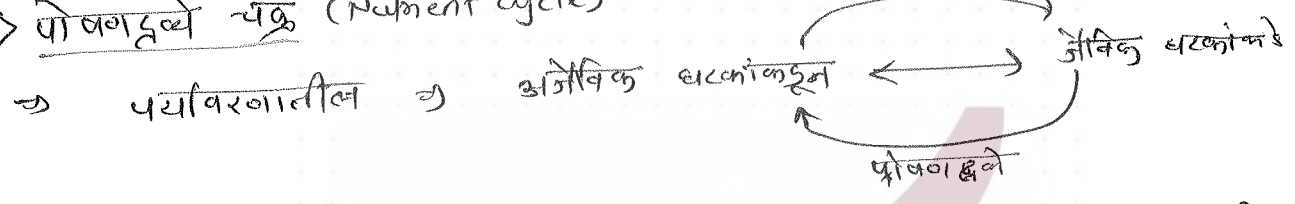 > पोषणद्रव्ये चक्र (Nutrient Cycle)
⇒ पर्यावरणातील ⇒ अजैविक घटकांकडून ⟷ जैविक घटकांकडे
पोषणद्रव्ये